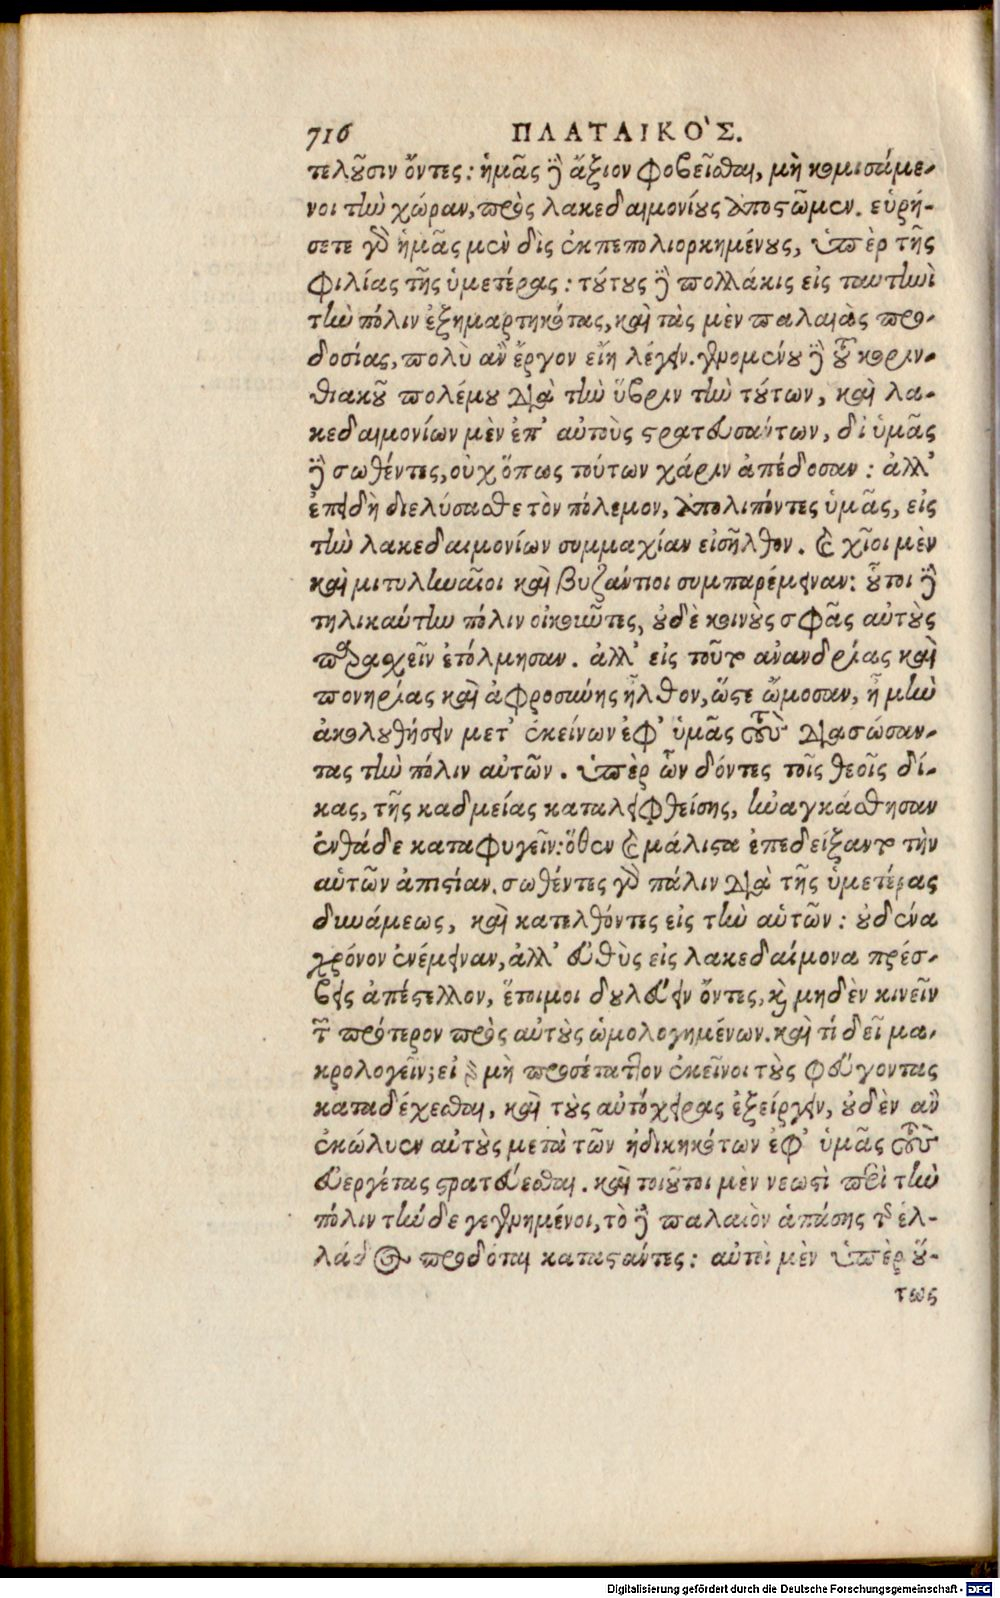 716 ΠΛΑΤΑΙΚΟ'Σ.
τελοῦσιν ὄντες: ἡμᾶς δὲ ἄξιον φοβεῖσθαι, μὴ κομισάμε-
νοι τὴν χώραν, πρὸς λακεδαιμονίους ἀποστῶμεν. εὑρή-
σετε γὰρ ἡμᾶς μὲν δὶς ἐκπεπολιορκημένους, ὑπὲρ τῆς
φιλίας τῆς ὑμετέρας: τούτους δὲ πολλάκις εἰς ταυτηνὶ
τὴν πόλιν ἐξημαρτηκότας, καὶ τὰς μὲν παλαιὰς προ-
δοσίας, πολὺ ἂν ἔργον εἴη λέγειν. γενομένου δὲ τοῦ κοριν-
θιακοῦ πολέμου διὰ τὴν ὕβριν τὴν τούτων, καὶ λα-
κεδαιμονίων μὲν ἐπ' αὐτοὺς στρατευσάντων, δι' ὑμᾶς
δὲ σωθέντες, οὐχ ὅπως τούτων χάριν ἀπέδοσαν: ἀλλ'
ἐπειδὴ διελύσασθε τὸν πόλεμον, ἀπολιπόντες ὑμᾶς, εἰς
τὴν λακεδαιμονίων συμμαχίαν εἰσῆλθον. καὶ χῖοι μὲν
καὶ μιτυληναῖοι καὶ βυζάντιοι συμπαρέμειναν: οὗτοι δὲ
τηλικαύτην πόλιν οἰκοῦντες, οὐδὲ κοινοὺς σφᾶς αὐτοὺς
παραχεῖν ἐτόλμησαν. ἀλλ' εἰς τοῦτο ἀνανδρίας καὶ
πονηρίας καὶ ἀφροσύνης ἦλθον, ὥστε ὤμοσαν, ἦ μὴν
ἀκολουθήσειν μετ' ἐκείνων ἐφ' ὑμᾶς τοὺς διασώσαν-
τας τὴν πόλιν αὐτῶν. ὑπὲρ ὧν δόντες τοῖς θεοῖς δί-
κας, τῆς καδμείας καταληφθείσης, ἠναγκάσθησαν
ἐνθάδε καταφυγεῖν: ὅθεν καὶ μάλιστα ἐπεδείξαντο τὴν
αὑτῶν ἀπιστίαν. σωθέντες γὰρ πάλιν διὰ τῆς ὑμετέρας
δυνάμεως, καὶ κατελθόντες εἰς τὴν αὑτῶν: οὐδένα
χρόνον ἐνέμειναν, ἀλλ' εὐθὺς εἰς λακεδαίμονα πρέσ-
βεις ἀπέστελλον, ἕτοιμοι δουλεύειν ὄντες, καὶ μηδὲν κινεῖν
τῶν πρότερον πρὸς αὐτοὺς ὡμολογημένων. καὶ τί δεῖ μα-
κρολογεῖν; εἰ γὰρ μὴ προσέταττον ἐκεῖνοι τοὺς φεύγοντας
καταδέχεσθαι, καὶ τοὺς αὐτόχειρας ἐξείργειν, οὐδὲν ἂν
ἐκώλυεν αὐτοὺς μετὰ τῶν ἠδικηκότων ἐφ' ὑμᾶς τοὺς
εὐεργέτας στρατεύεσθαι. καὶ τοιοῦτοι μὲν νεωστὶ περὶ τὴν
πόλιν τήνδε γεγενημένοι, τὸ δὲ παλαιὸν ἁπάσης τῆς ἑλ-
λάδος προδόται καταστάντες: αὐτοὶ μὲν ὑπὲρ οὕ-
τως
Digitalisierung gefördert durch die Deutsche Forschungsgemeinschaft - DFG